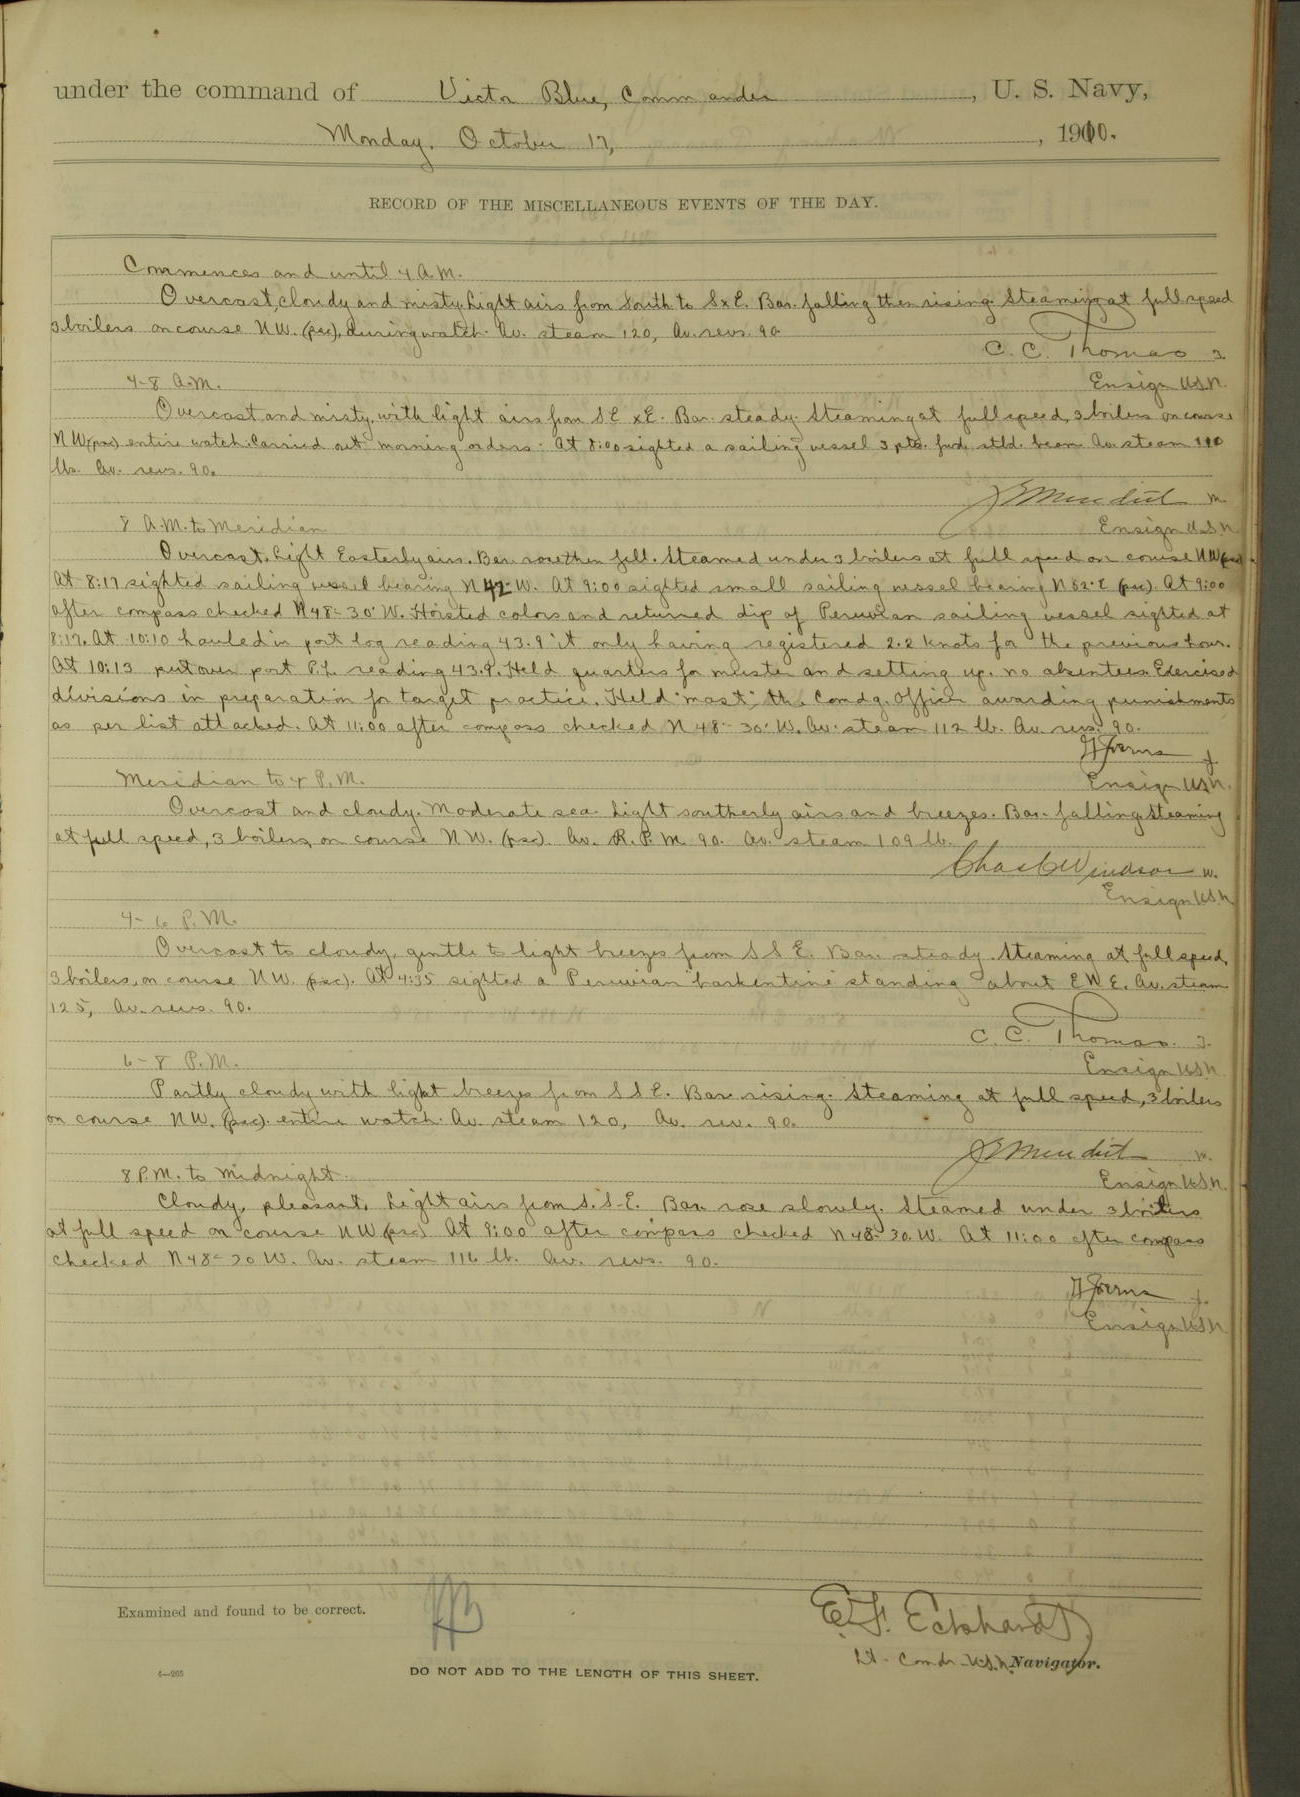 under the command of Victor Blue, Commander, U. S. Navy,
Monday, October 17, 1910.
RECORD OF THE MISCELLANEOUS EVENTS OF THE DAY.
Commences and until 4 A.M.
Overcast, cloudy and misty. Light airs from South to SxE. Bar. falling then rising. Steaming at full speed
3 boilers on course NW. (psc), during watch. Av. steam 120, Av. revs. 90
C. C. Thomas
Ensign U.S.N.
4-8 A.M.
Overcast and misty, with light airs from SE xE. Bar. steady. Steaming at full speed, 3 boilers on course
NW (psc) entire watch. Carried out morning orders. At 8:00 sighted a sailing vessel 3 pts. fwd. stbd. beam. Av. steam 110
lbs. Av. revs. 90.
Ensign U.S.N.
8 A.M. to Meridian
Overcast. Light Easterly airs. Bar. rose then fell. Steamed under 3 boilers at full speed on course NW (psc)
At 8:17 sighted sailing vessel bearing N 42° W. At 9:00 sighted small sailing vessel bearing N 52° E (psc). At 9:00
after compass checked N 48°-30' W. Hoisted colors and returned dip of Peruvian sailing vessel sighted at
8:17. At 10:10 hauled in port log reading 43.9 it only having registered 2.2 knots for the previous hour.
At 10:13 put over port P.L. reading 43.9. Held quarters for muster and setting up, no absentees. Exercised
divisions in preparation for target practice. Held "mast", the Comdg. Officer awarding punishments
as per list attached. At 11:00 after compass checked N 48°-30' W. Av. steam 112 lb. Av. revs. 90.
Ensign U.S.N.
Meridian to 4 P.M.
Overcast and cloudy. Moderate sea. Light southerly airs and breezes. Bar. falling. Steaming
at full speed, 3 boilers, on course NW. (psc). Av. R.P.M. 90. Av. steam 109 lb.
Chas C Windsor W.
Ensign U.S.N.
4-6 P.M.
Overcast to cloudy, gentle to light breezes from SSE. Bar. steady. Steaming at full speed,
3 boilers, on course NW. (psc). At 4:35 sighted a Peruvian barkentine standing about Av. steam
125, Av. revs. 90.
C. C. Thomas
Ensign U.S.N.
6-8 P.M.
Partly cloudy with light breezes from SSE. Bar. rising. Steaming at full speed, 3 boilers
on course NW. (psc) entire watch. Av. steam 120, Av. rev. 90.
Ensign U.S.N.
8 P.M. to Midnight
Cloudy, pleasant, Light airs from S.S.E. Bar. rose slowly. Steamed under 3 boilers
at full speed on course NW (psc) At 9:00 after compass checked N 48°-30 W. At 11:00 after compass
checked N 48°-30 W. Av. steam 116 lb. Av. revs. 90.
Ensign U.S.N.
Examined and found to be correct.
E. F. Eckhardt
Lt. Comdr. U.S.N. Navigator.
6—265
DO NOT ADD TO THE LENGTH OF THIS SHEET.